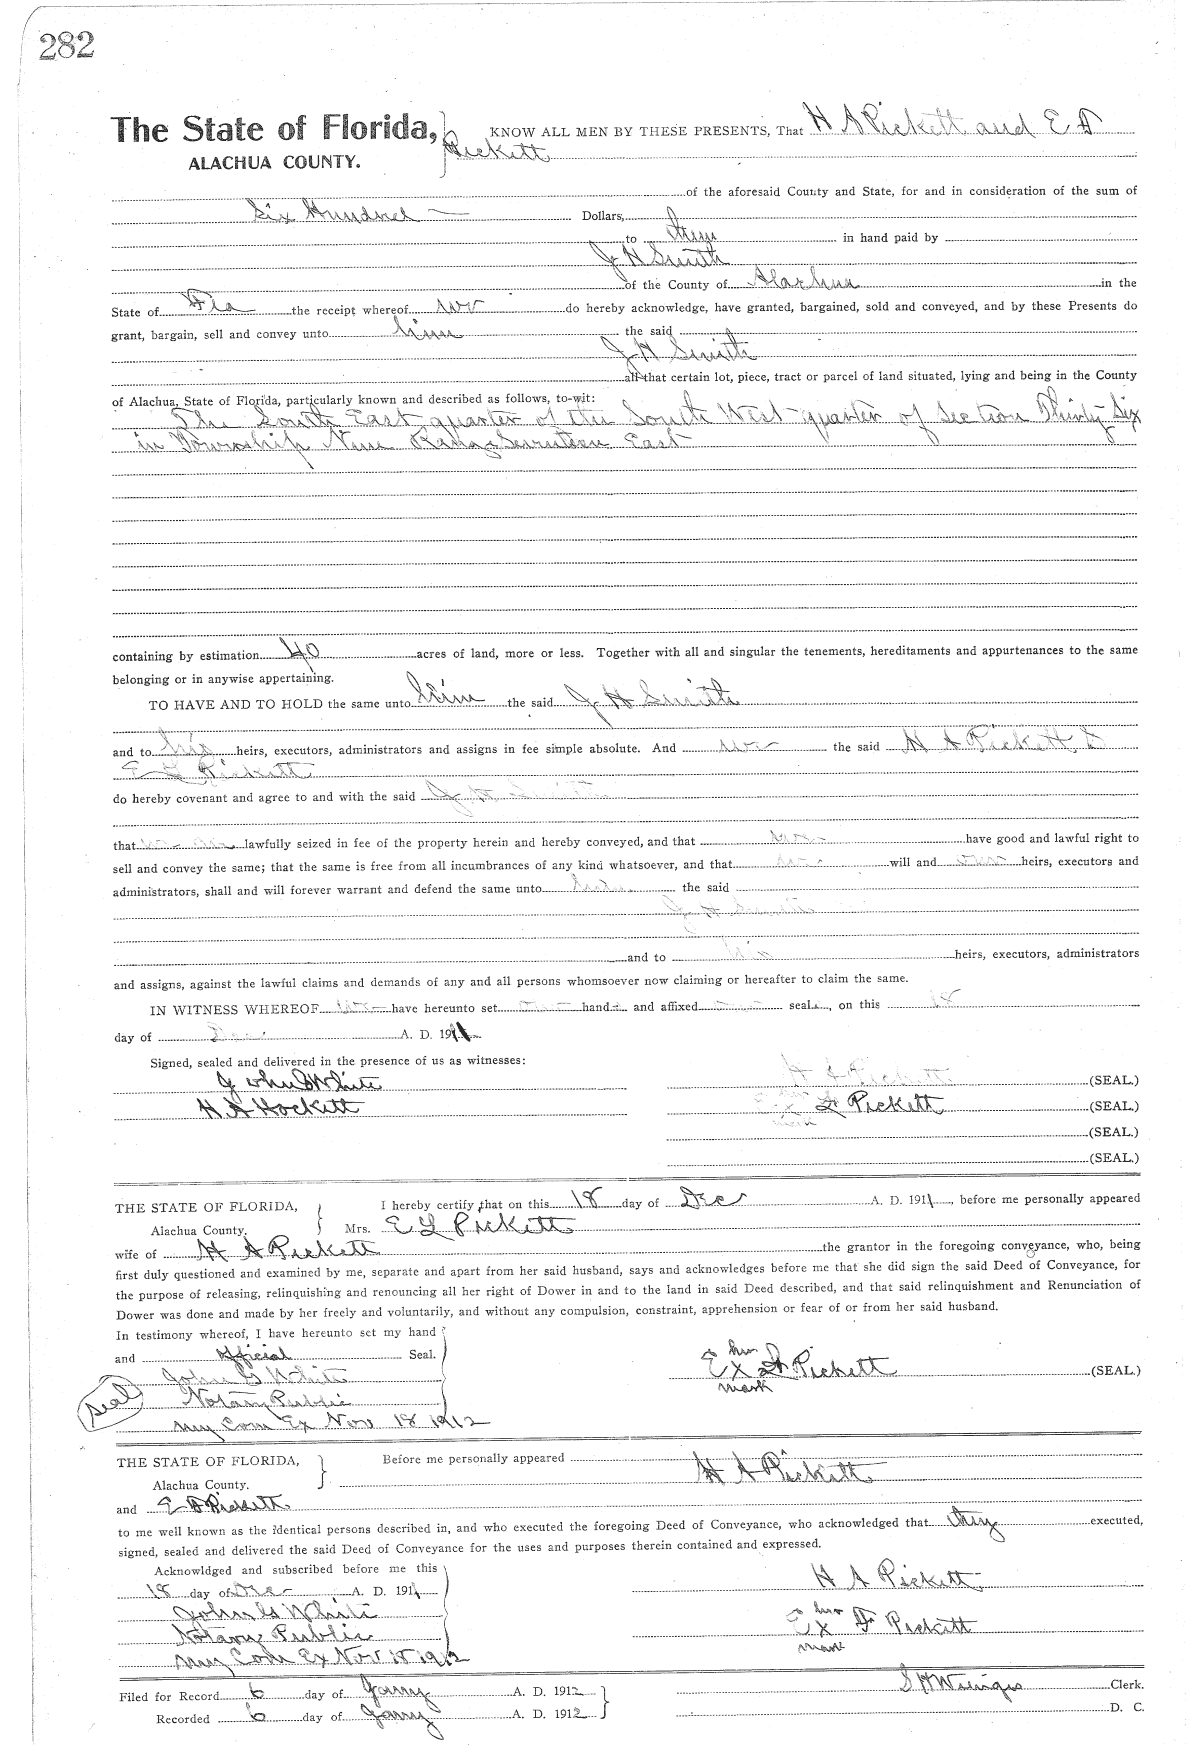 282
The State of Florida, KNOW ALL MEN BY THESE PRESENTS, That H A Pickett and E D
ALACHUA COUNTY. Pickett
of the aforesaid County and State, for and in consideration of the sum of
Six Hundred Dollars,
to them in hand paid by
J H Smith
of the County of Alachua in the
State of Fla the receipt whereof we do hereby acknowledge, have granted, bargained, sold and conveyed, and by these Presents do
grant, bargain, sell and convey unto him the said
J H Smith
all that certain lot, piece, tract or parcel of land situated, lying and being in the County
of Alachua, State of Florida, particularly known and described as follows, to-wit:
The South East quarter of the South West quarter of Section Thirty Six
in Township Nine Range Seventeen East
containing by estimation 40 acres of land, more or less. Together with all and singular the tenements, hereditaments and appurtenances to the same
belonging or in anywise appertaining.
TO HAVE AND TO HOLD the same unto him the said J H Smith
and to his heirs, executors, administrators and assigns in fee simple absolute. And we the said H A Pickett &
E L Pickett
do hereby covenant and agree to and with the said J H Smith
that we are lawfully seized in fee of the property herein and hereby conveyed, and that we have good and lawful right to
sell and convey the same; that the same is free from all incumbrances of any kind whatsoever, and that we will and our heirs, executors and
administrators, shall and will forever warrant and defend the same unto him the said
J H Smith
and to his heirs, executors, administrators
and assigns, against the lawful claims and demands of any and all persons whomsoever now claiming or hereafter to claim the same.
IN WITNESS WHEREOF we have hereunto set our hands and affixed our seals, on this 18
day of Dec A. D. 1911
Signed, sealed and delivered in the presence of us as witnesses:
John G White H A Pickett (SEAL.)
H A Hockett E his x mark F Pickett (SEAL.)
(SEAL.)
(SEAL.)
THE STATE OF FLORIDA, I hereby certify that on this 18 day of Dec A. D. 1911, before me personally appeared
Alachua County. Mrs. E L Pickett
wife of H A Pickett the grantor in the foregoing conveyance, who, being
first duly questioned and examined by me, separate and apart from her said husband, says and acknowledges before me that she did sign the said Deed of Conveyance, for
the purpose of releasing, relinquishing and renouncing all her right of Dower in and to the land in said Deed described, and that said relinquishment and Renunciation of
Dower was done and made by her freely and voluntarily, and without any compulsion, constraint, apprehension or fear of or from her said husband.
In testimony whereof, I have hereunto set my hand
and official Seal. E her x mark F Pickett (SEAL.)
John G White
seal Notary Public
My Com Ex Nov 18 1912
THE STATE OF FLORIDA, Before me personally appeared H A Pickett
Alachua County.
and E D Pickett
to me well known as the identical persons described in, and who executed the foregoing Deed of Conveyance, who acknowledged that they executed,
signed, sealed and delivered the said Deed of Conveyance for the uses and purposes therein contained and expressed.
Acknowldged and subscribed before me this
18 day of Dec A. D. 1911 H A Pickett
John G White
Notary Public E her x mark F Pickett
My Com Ex Nov 18 1912
Filed for Record 6 day of Janry A. D. 1912 S H Wienges Clerk.
Recorded 6 day of Janry A. D. 1912 D. C.